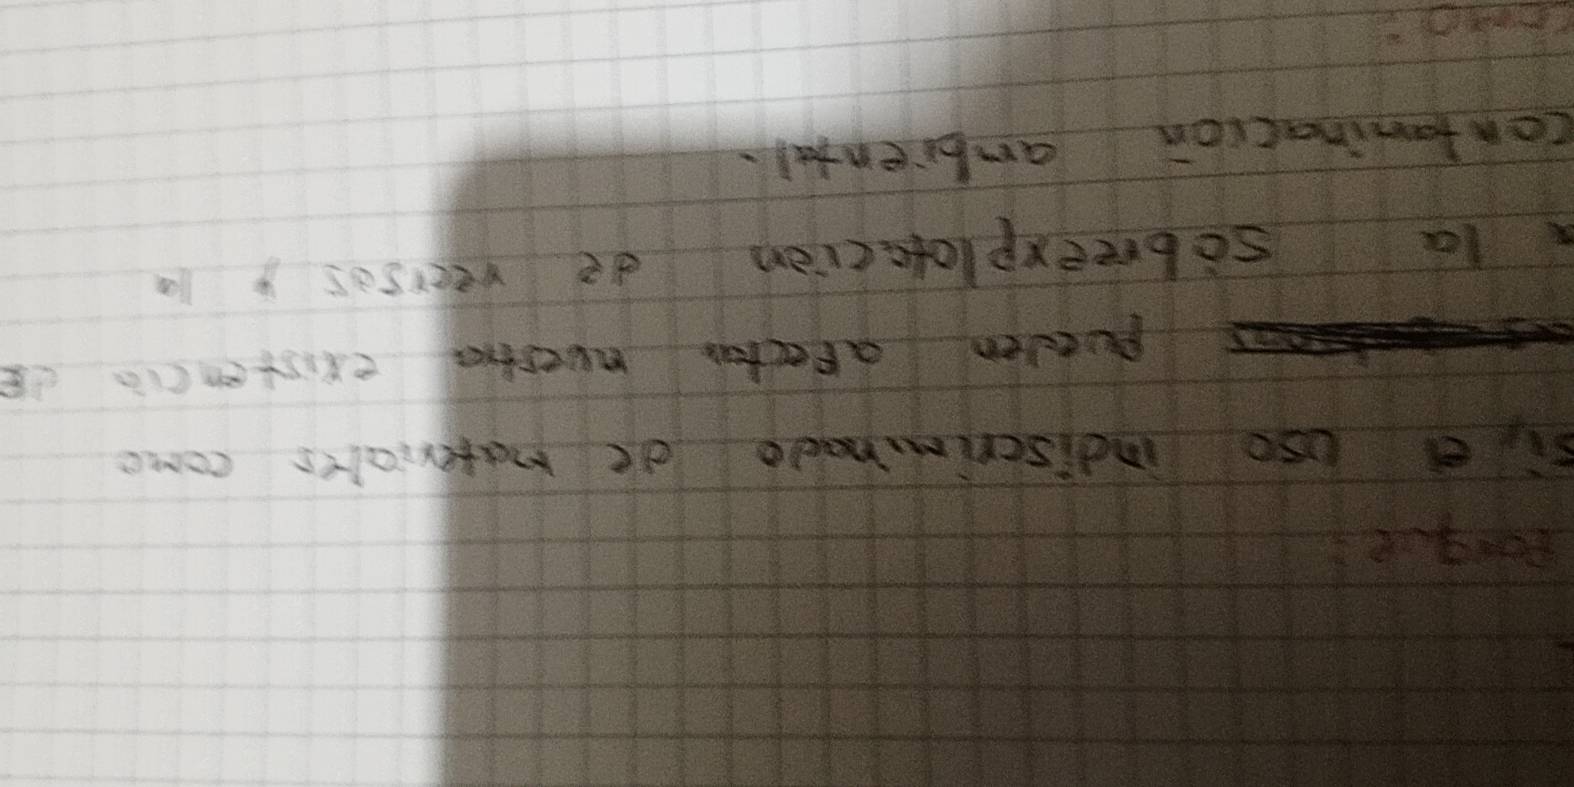 Porque:
si, el uso indiscriminado de materiales como
pueden afectar nuestra existencia de
a la sobreexplotación de recrsos y la
contaminación ambiental.
como: